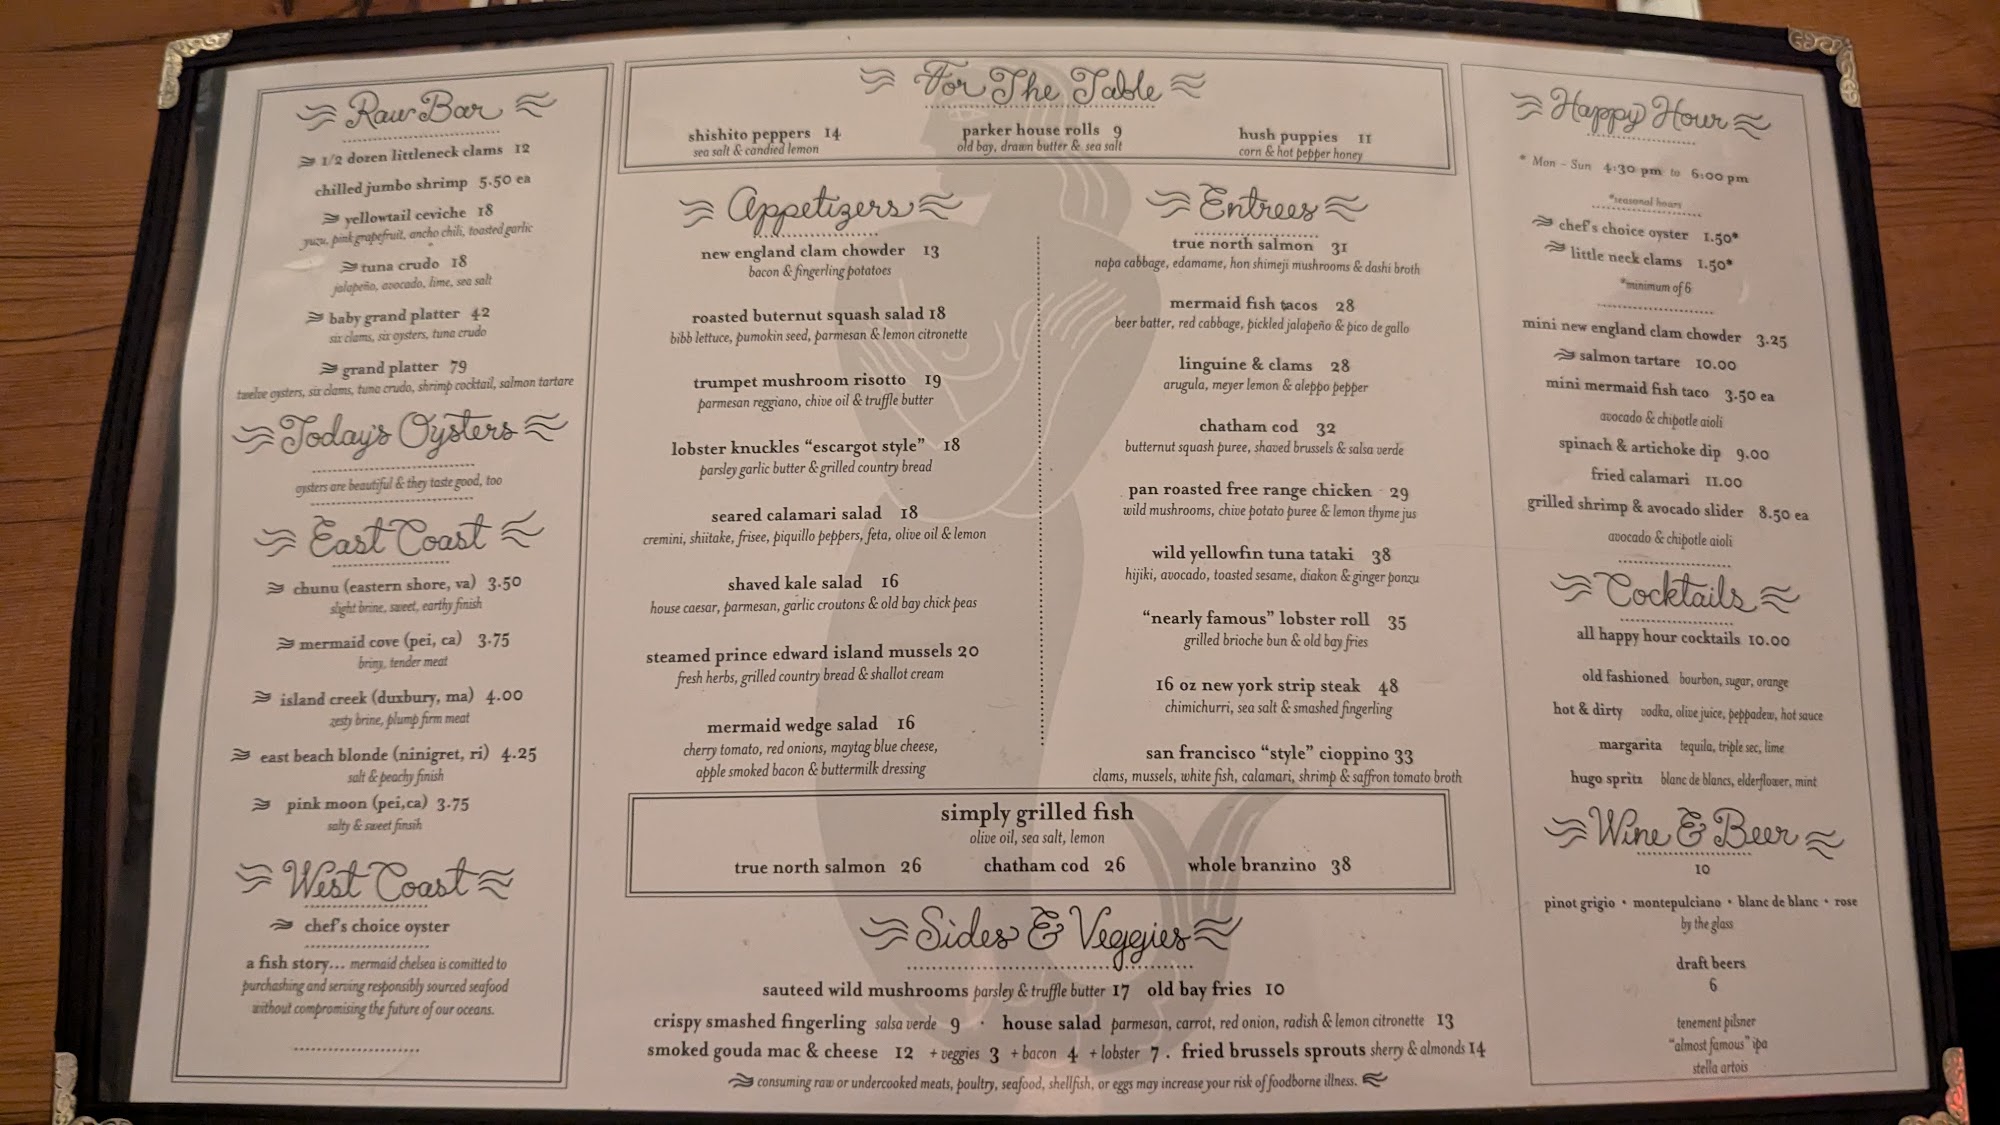 Raw Bar
1/2 dozen littleneck clams 12
chilled jumbo shrimp 5.50 ea
yellowtail ceviche 18
yuzu, pink grapefruit, ancho chili, toasted garlic
tuna crudo 18
jalapeño, avocado, lime, sea salt
baby grand platter 42
six clams, six oysters, tuna crudo
grand platter 79
twelve oysters, six clams, tuna crudo, shrimp cocktail, salmon tartare
Today's Oysters
oysters are beautiful & they taste good, too
East Coast
chunu (eastern shore, va) 3.50
slight brine, sweet, earthy finish
mermaid cove (pei, ca) 3.75
briny, tender meat
island creek (duxbury, ma) 4.00
zesty brine, plump firm meat
east beach blonde (ninigret, ri) 4.25
salt & peachy finish
pink moon (pei,ca) 3.75
salty & sweet finsih
West Coast
chef's choice oyster
a fish story... mermaid chelsea is comitted to
purchashing and serving responsibly sourced seafood
without compromising the future of our oceans.
For The Table
shishito peppers 14
sea salt & candied lemon
parker house rolls 9
old bay, drawn butter & sea salt
hush puppies 11
corn & hot pepper honey
Appetizers
new england clam chowder 13
bacon & fingerling potatoes
roasted buternut squash salad 18
bibb lettuce, pumokin seed, parmesan & lemon citronette
trumpet mushroom risotto 19
parmesan reggiano, chive oil & truffle butter
lobster knuckles “escargot style” 18
parsley garlic butter & grilled country bread
seared calamari salad 18
cremini, shiitake, frisee, piquillo peppers, feta, olive oil & lemon
shaved kale salad 16
house caesar, parmesan, garlic croutons & old bay chick peas
steamed prince edward island mussels 20
fresh herbs, grilled country bread & shallot cream
mermaid wedge salad 16
cherry tomato, red onions, maytag blue cheese,
apple smoked bacon & buttermilk dressing
Entrees
true north salmon 31
napa cabbage, edamame, hon shimeji mushrooms & dashi broth
mermaid fish tacos 28
beer batter, red cabbage, pickled jalapeño & pico de gallo
linguine & clams 28
arugula, meyer lemon & aleppo pepper
chatham cod 32
butternut squash puree, shaved brussels & salsa verde
pan roasted free range chicken 29
wild mushrooms, chive potato puree & lemon thyme jus
wild yellowfin tuna tataki 38
hijiki, avocado, toasted sesame, diakon & ginger ponzu
“nearly famous” lobster roll 35
grilled brioche bun & old bay fries
16 oz new york strip steak 48
chimichurri, sea salt & smashed fingerling
san francisco “style” cioppino 33
clams, mussels, white fish, calamari, shrimp & saffron tomato broth
simply grilled fish
olive oil, sea salt, lemon
true north salmon 26 chatham cod 26 whole branzino 38
Sides & Veggies
sauteed wild mushrooms parsley & truffle butter 17 old bay fries 10
crispy smashed fingerling salsa verde 9 · house salad parmesan, carrot, red onion, radish & lemon citronette 13
smoked gouda mac & cheese 12 + veggies 3 + bacon 4 + lobster 7 . fried brussels sprouts sherry & almonds 14
consuming raw or undercooked meats, poultry, seafood, shellfish, or eggs may increase your risk of foodborne illness.
Happy Hour
* Mon - Sun 4:30 pm to 6:00 pm
*seasonal hours
chef's choice oyster 1.50*
little neck clams 1.50*
*minimum of 6
mini new england clam chowder 3.25
salmon tartare 10.00
mini mermaid fish taco 3.50 ea
avocado & chipotle aioli
spinach & artichoke dip 9.00
fried calamari 11.00
grilled shrimp & avocado slider 8.50 ea
avocado & chipotle aioli
Cocktails
all happy hour cocktails 10.00
old fashioned bourbon, sugar, orange
hot & dirty vodka, olive juice, peppadew, hot sauce
margarita tequila, triple sec, lime
hugo spritz blanc de blancs, elderflower, mint
Wine & Beer
10
pinot grigio • montepulciano • blanc de blanc • rose
by the glass
draft beers
6
tenement pilsner
“almost famous” ipa
stella artois